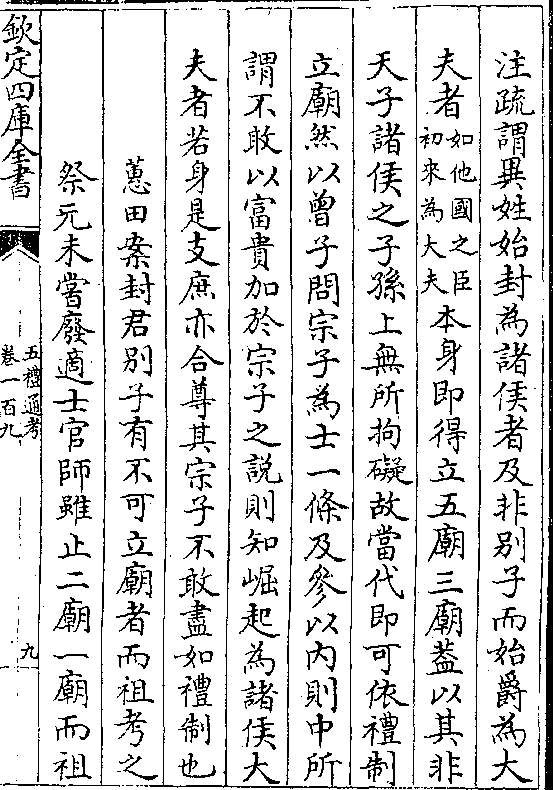 注疏謂異姓始封為諸侯者及非別子而始爵為大
夫者如他國之臣初來為大夫本身即得立五廟三廟葢以其非
天子諸侯之子孫上無所拘礙故當代即可依禮制
立廟然以曾子問宗子為士一條及參以内則中所
謂不敢以富貴加於宗子之説則知崛起為諸侯大
夫者若身是支庶亦合尊其宗子不敢盡如禮制也
蕙田案封君別子有不可立廟者而祖考之
祭元未嘗廢適士官師雖止二廟一廟而祖
欽定四庫全書
五禮通考
卷一百九
九